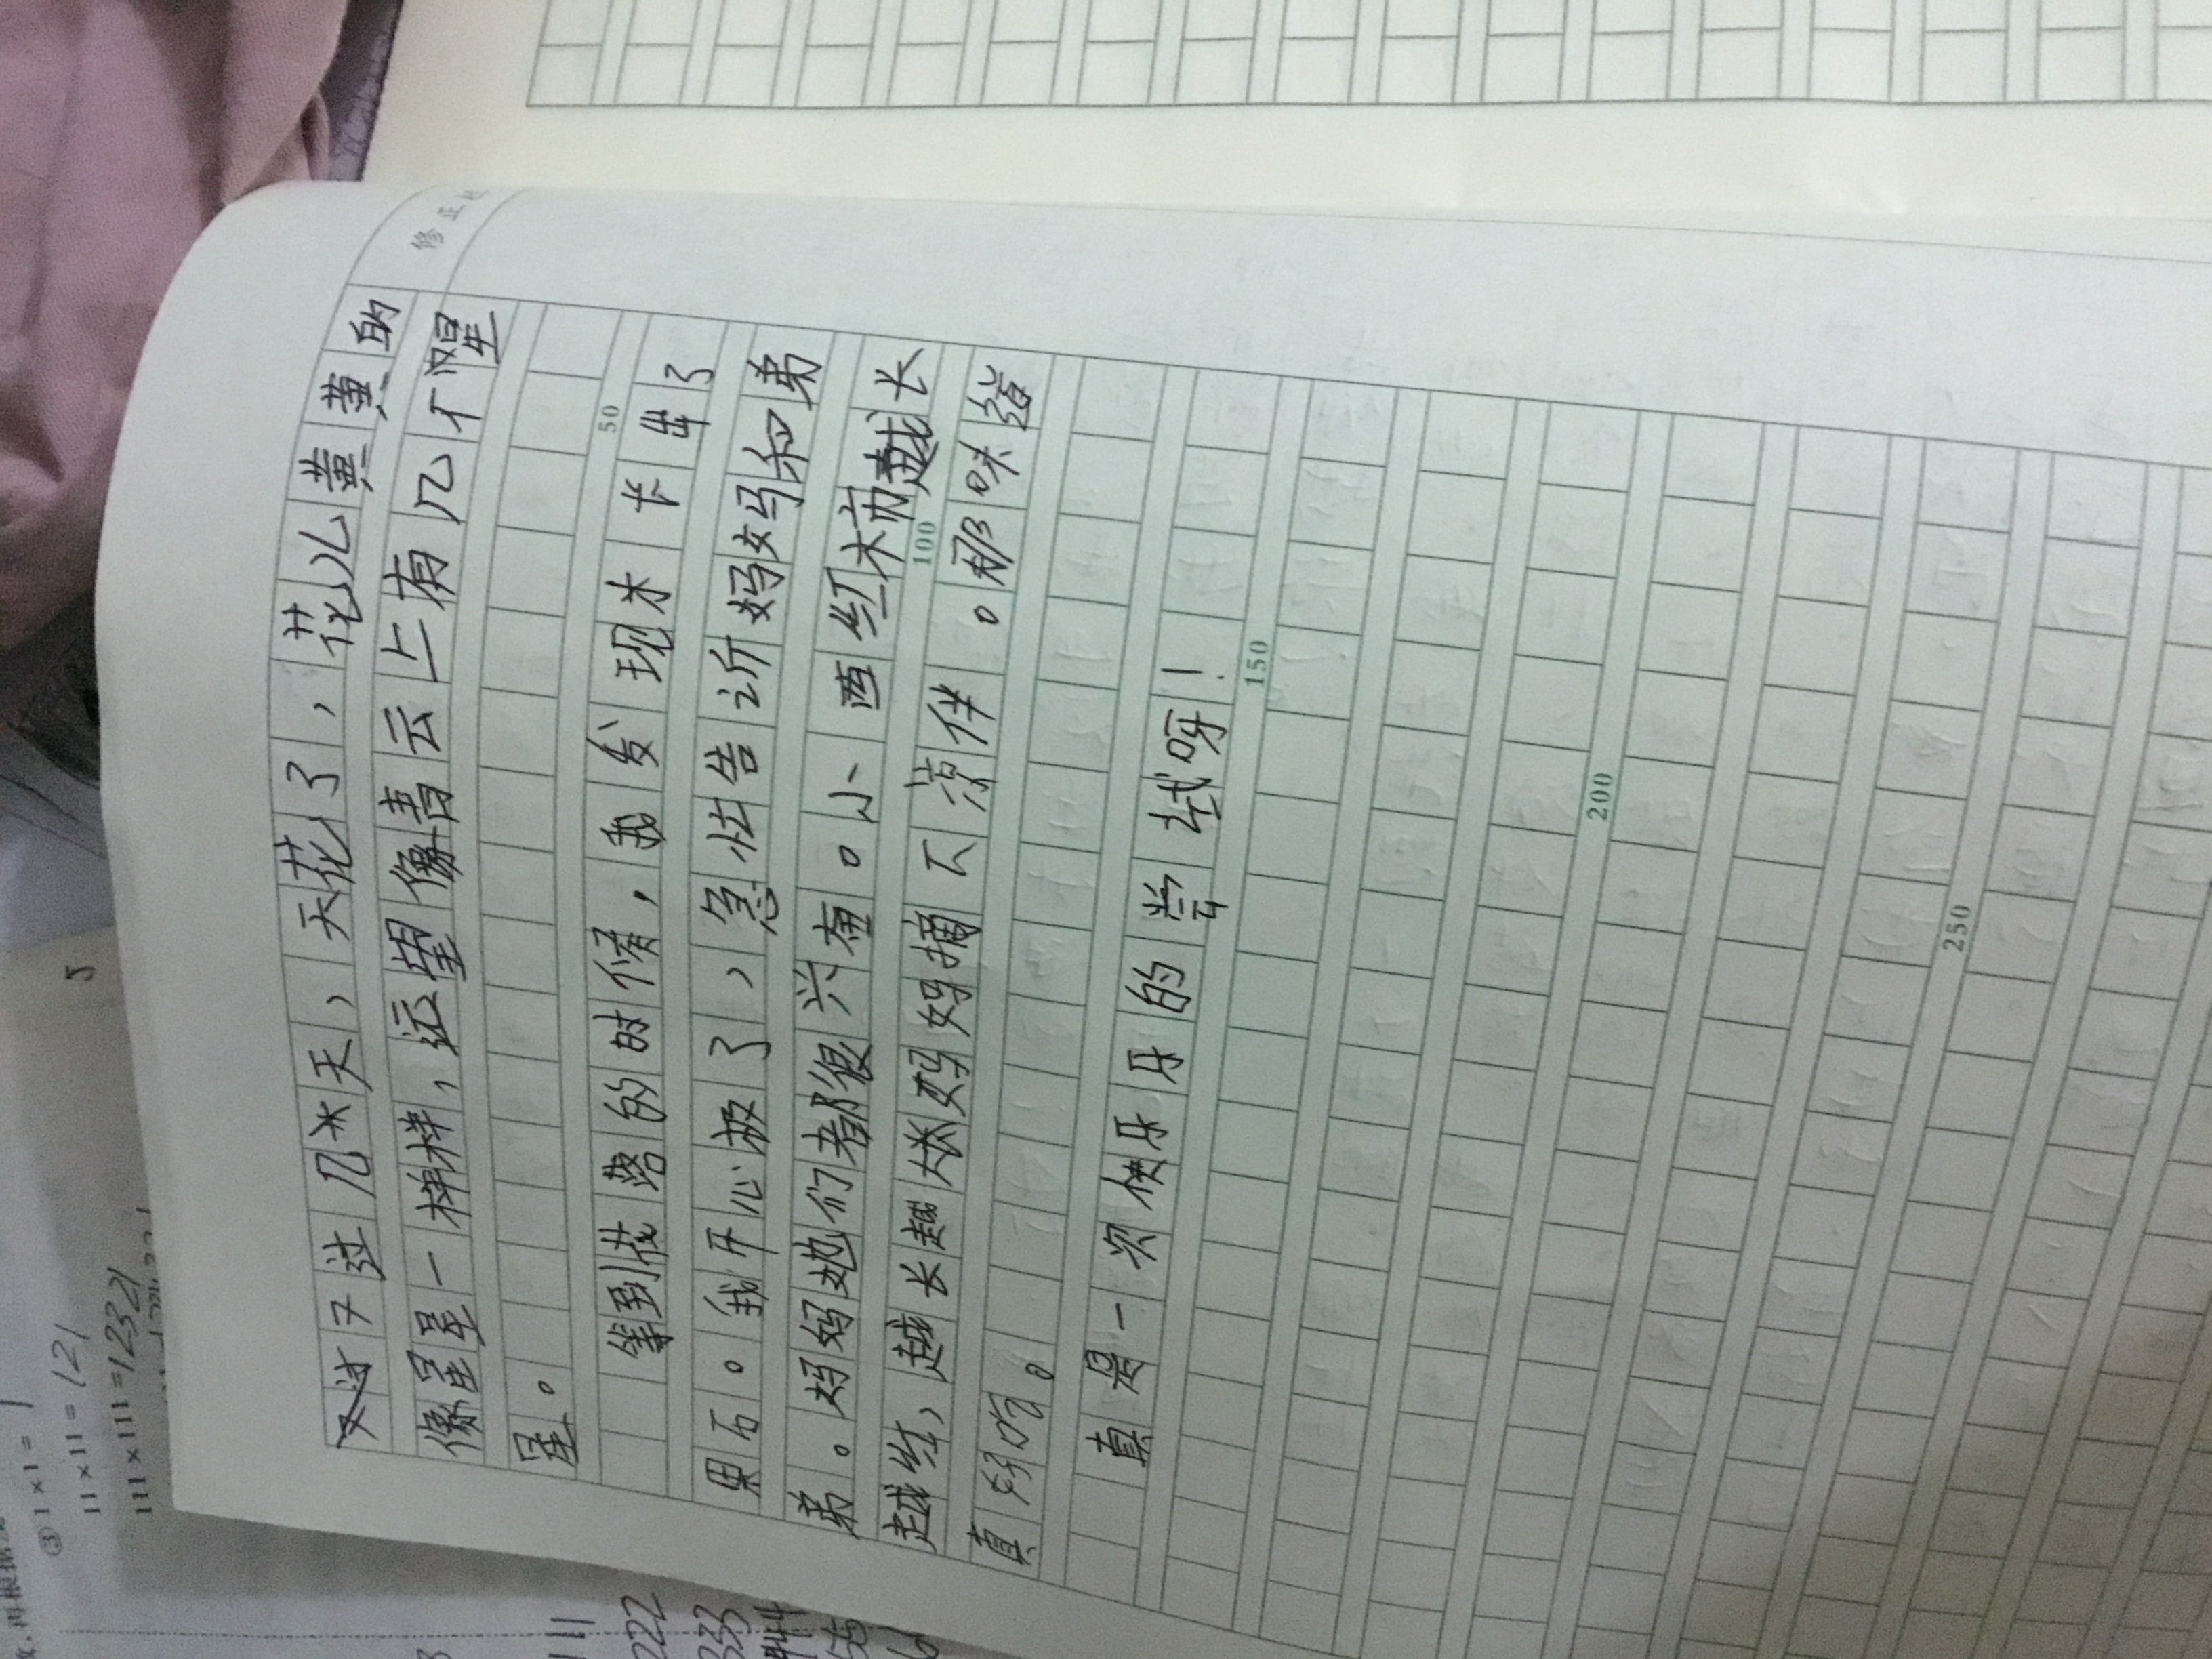 修正
过几天,天花了,花儿黄黄的
像星星一样样,远望像青云上有几个星
星。
等到花落的时候,我发现木卡出了
果石。我开心极了,急忙告诉妈妈和弟
弟。妈妈她们都很兴奋。小西红柿越长
越红,越长越大妈妈摘下凉伴。那味道
真好吃。
真是一次快乐的尝试呀!
50
100
150
200
250
③ 1×1=1
11×11=121
111×111=12321
111
222
333
444